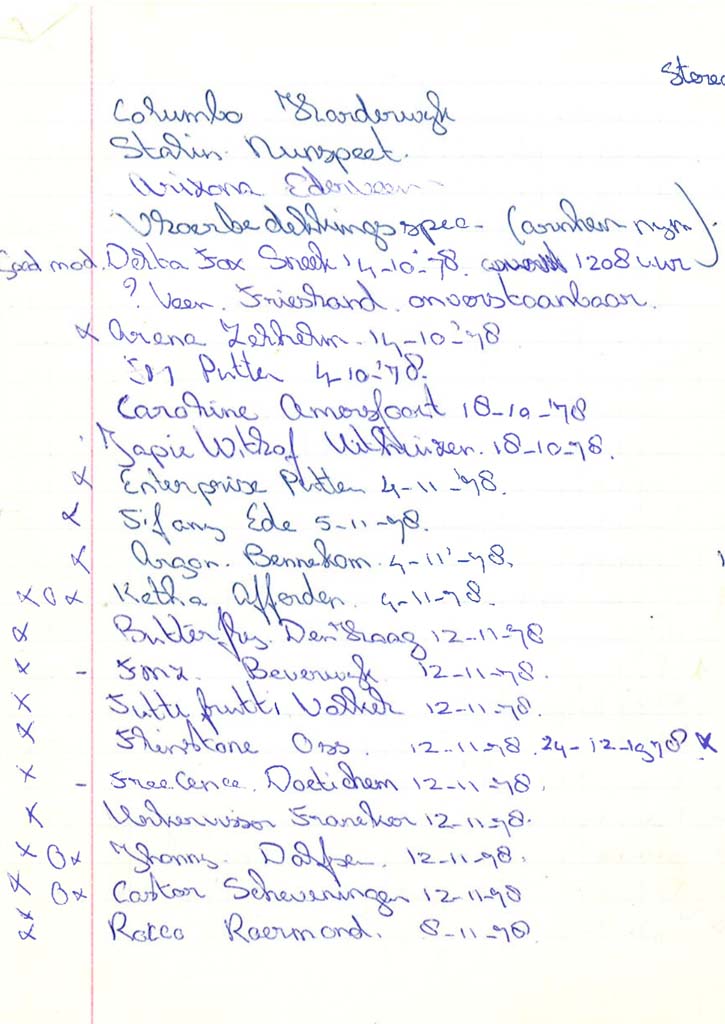 Stereo
Columbo Harderwyk
Stalin. Nunspeet.
Arizona Ederveen
Vloerbedekkingsspec- (arnhem nym).
Goed mod. Delta Fox Sneek 14-10-'78. 1208 uur
? Veen. Friesland. onverstaanbaar.
x Arena Zelhelm. 14-10-'78
Putten 4-10-'78.
Caroline Amersfoort 18-10-'78
Japie Withof Uithuizen. 18-10-78.
x Enterprise Putten 4-11-'78.
x Tifany Ede 5-11-78.
x Argon. Bennekom. 4-11-'78.
x0x Ketha Afferden. 4-11-78.
x Butterfly. Den Haag 12-11-78
x - Beverwyk 12-11-78.
x Tutti frutti Volkel 12-11-78.
x Flinstone Oss. 12-11-78. 24-12-1978 x
x - Freecence. Doetichem 12-11-78.
x Franeker 12-11-78.
x 0x Jhonny. Dalfsen. 12-11-78.
x 0x Castor Scheveningen 12-11-78
xx Rocco Roermond. 8-11-78.